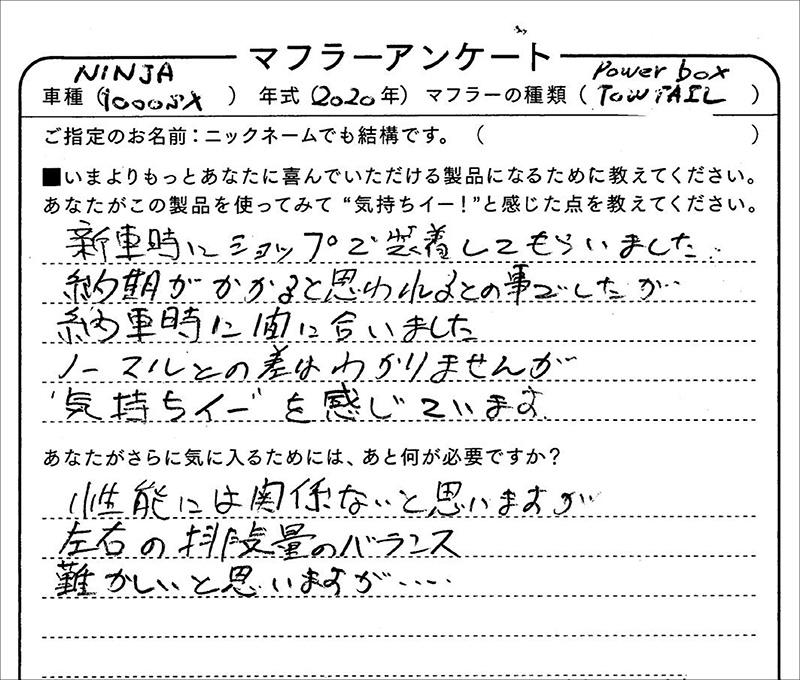 マフラーアンケート
車種（NINJA 1000SX） 年式（2020年） マフラーの種類（Power box TOWTAIL）
ご指定のお名前：ニックネームでも結構です。（ ）
■いまよりもっとあなたに喜んでいただける製品になるために教えてください。
あなたがこの製品を使ってみて“気持ちイー！”と感じた点を教えてください。
新車時にショップで装着してもらいました.
納期がかかると思われるとの事でしたが…
納車時に間に合いました
ノーマルとの差はわかりませんが
“気持ちイー”を感じています
あなたがさらに気に入るためには、あと何が必要ですか？
性能には関係ないと思いますが
左右の排気量のバランス
難かしいと思いますが.....